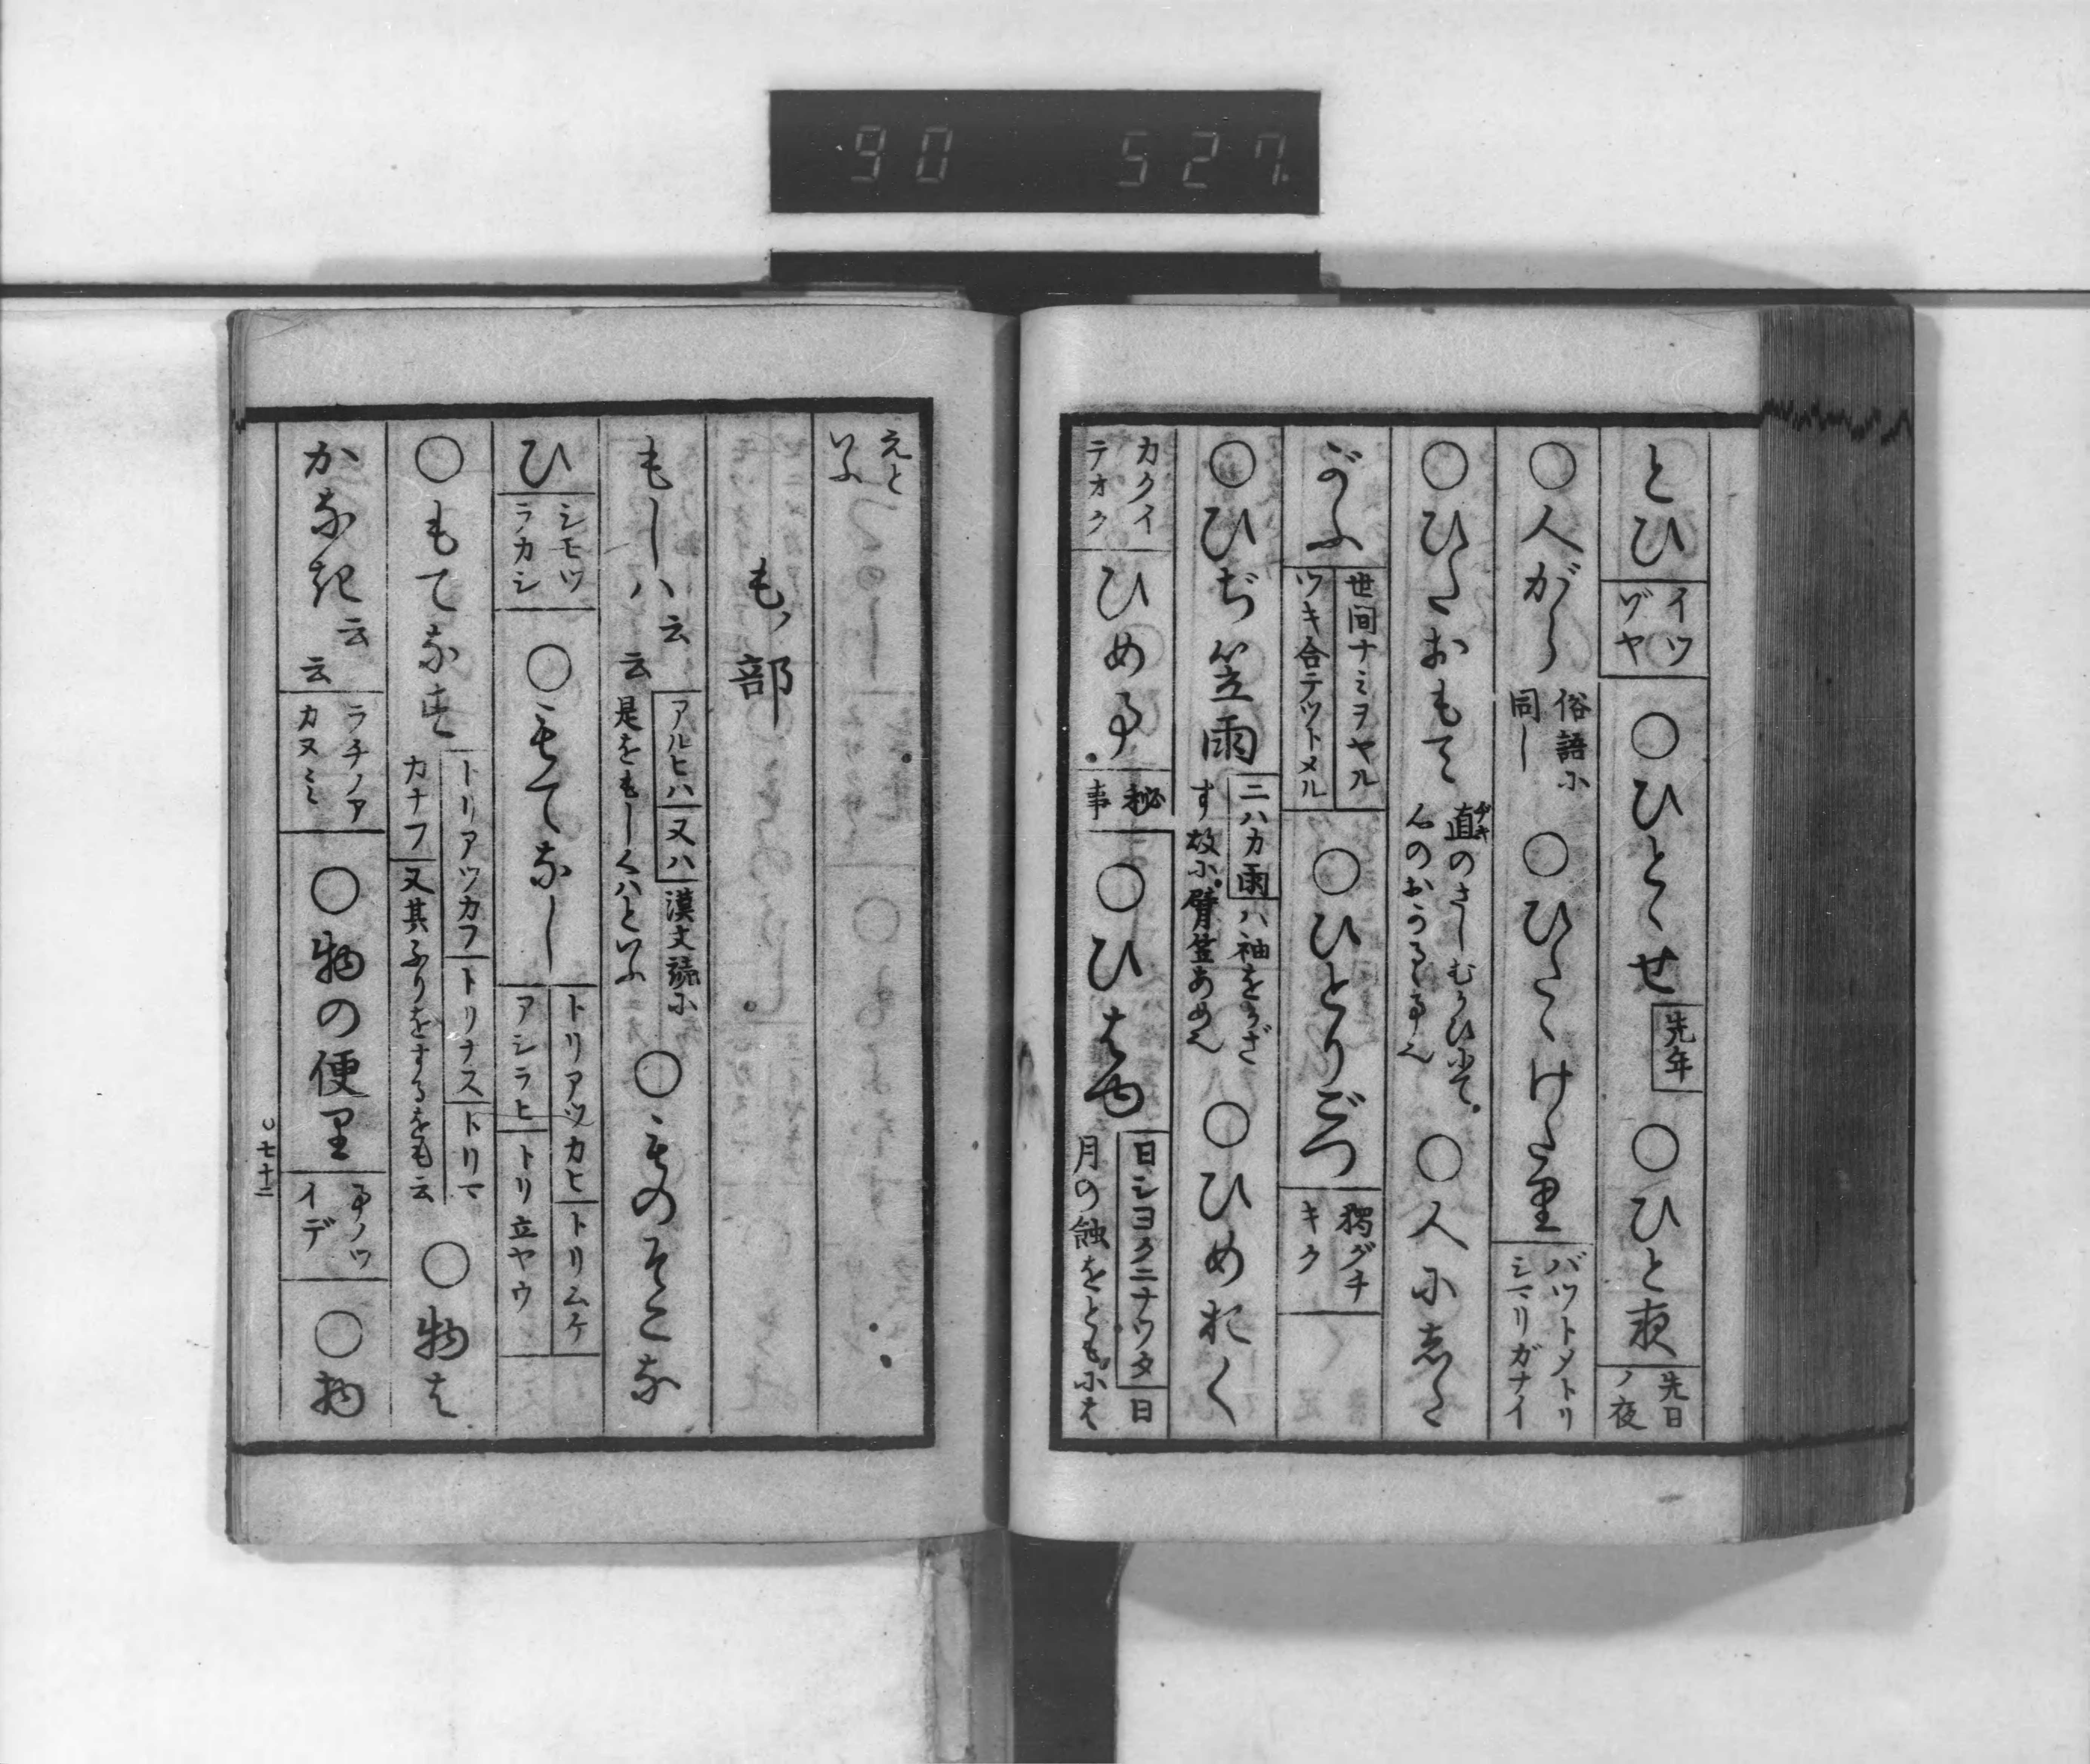 90 527.
とひ イツゾヤ ○ひとゝせ 先年 ○ひと夜 先日ノ夜
○人がら 俗語に同し ○ひたゝけたり バツトメトリシマリガナイ
○ひたおもて 直のさしむかひにて。 ○人にまた
がふ 世間ナミヲヤル ツキ合テツトメル ○ひとりごつ 獨グチキク
○ひぢ笠雨 ニハカ雨ハ袖をかざす故に。臂笠あめ也 ○ひめおく
カクイテオク ひめ事。 秘事 ○ひはゆ 日シヨクニナツタ 日月の蝕をともには
えと いふ
も部
もしハ云云 アルヒハ 又ハ 漢文読に是をもしくハといふ ○ものそこな
ひ シモツラカシ ○もてなし トリアツカヒ トリムケ アシラヒ トリ立ヤウ
○もてなす トリアツカフ トリナス トリマカナフ 又其ふりをするをも云 ○物は
かなき云云 ラチノアカヌミミ ○物の便里 事ノツイデ ○物
七十二